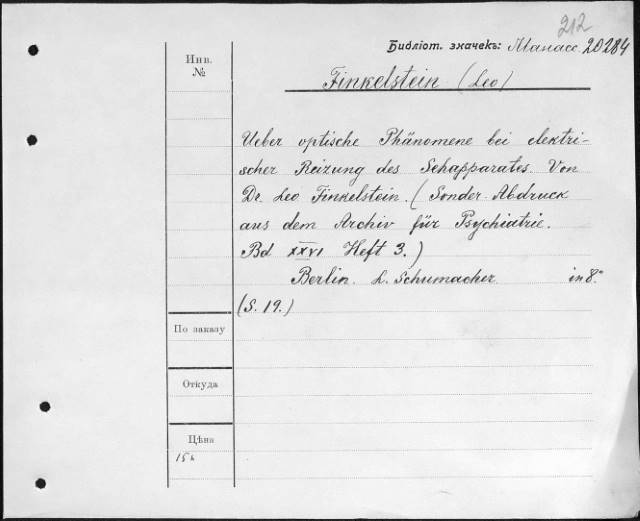 212
Библіот. значекъ: Манасс. 20284
Инв. №
Finkelstein (Leo)
Ueber optische Phänomene bei elektri-
scher Reizung des Sehapparates. Von
Dr. Leo Finkelstein. (Sonder-Abdruck
aus dem Archiv für Psychiatrie.
Bd XXVI Heft 3.)
Berlin. L. Schumacher. in 8°
(S. 19.)
По заказу
Откуда
Цѣна
15к